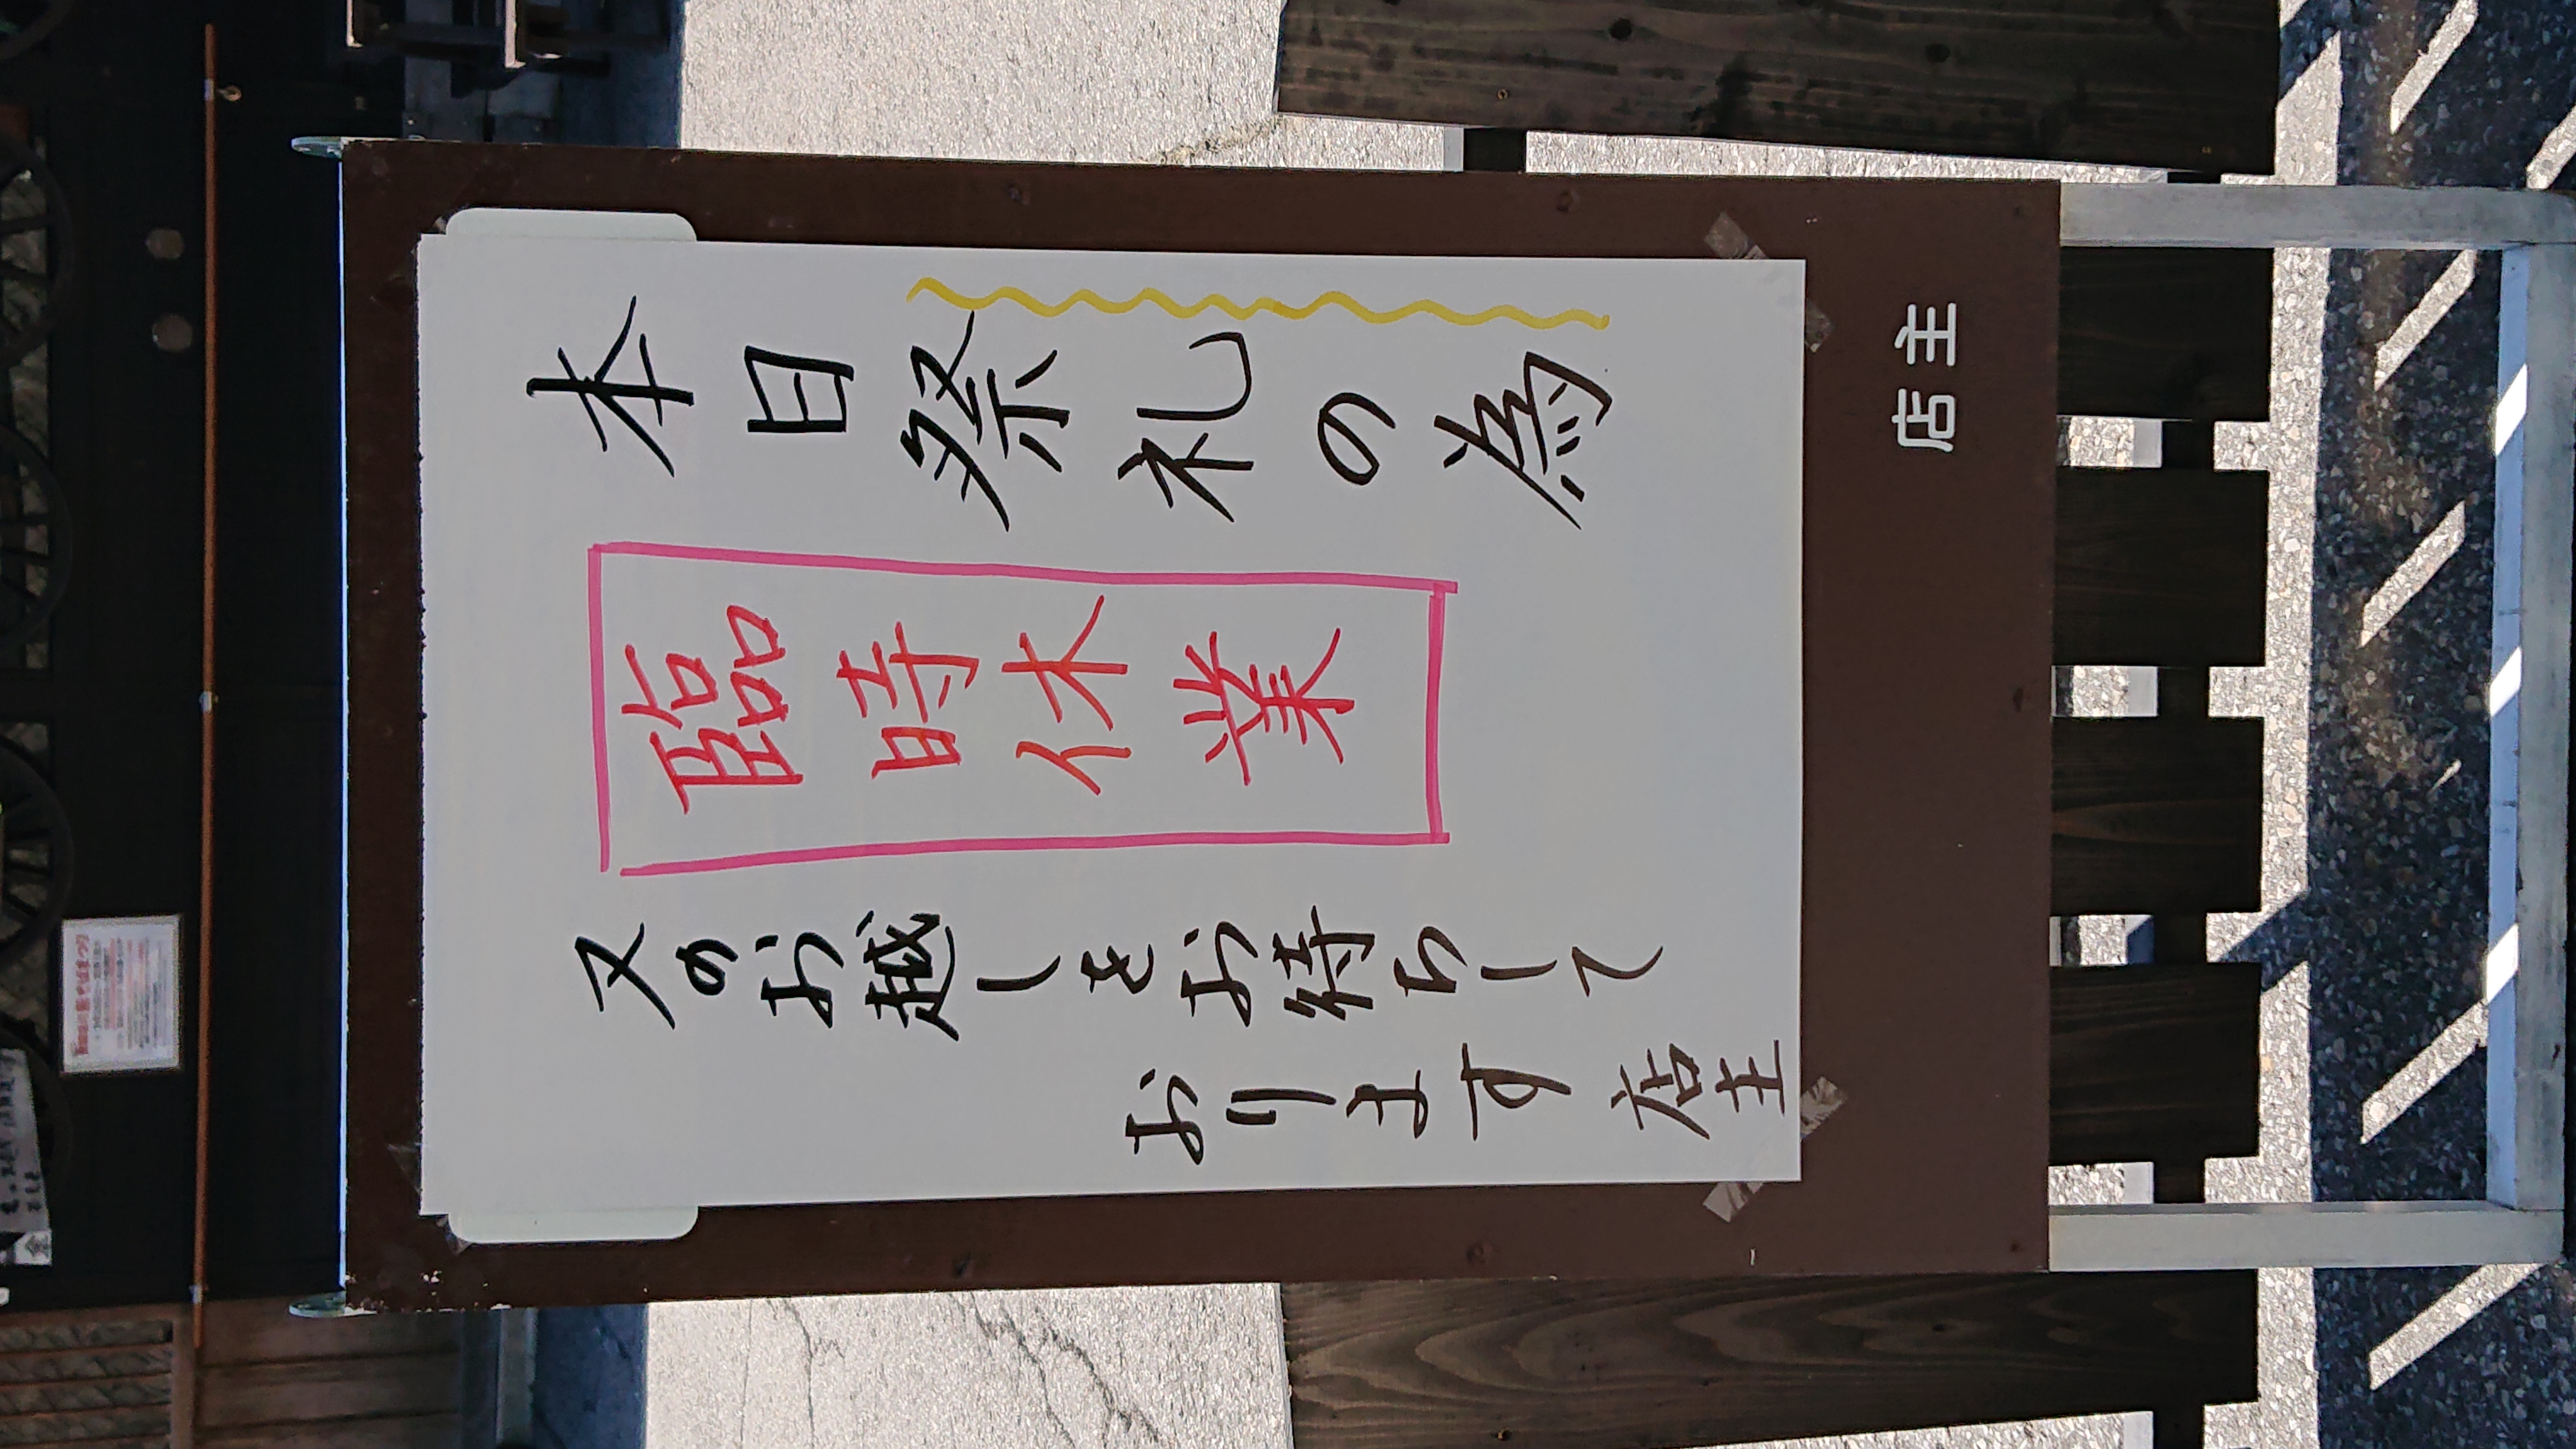 本日祭礼の為
臨時休業
又のお越しをお待ちして
おります 店主
店主